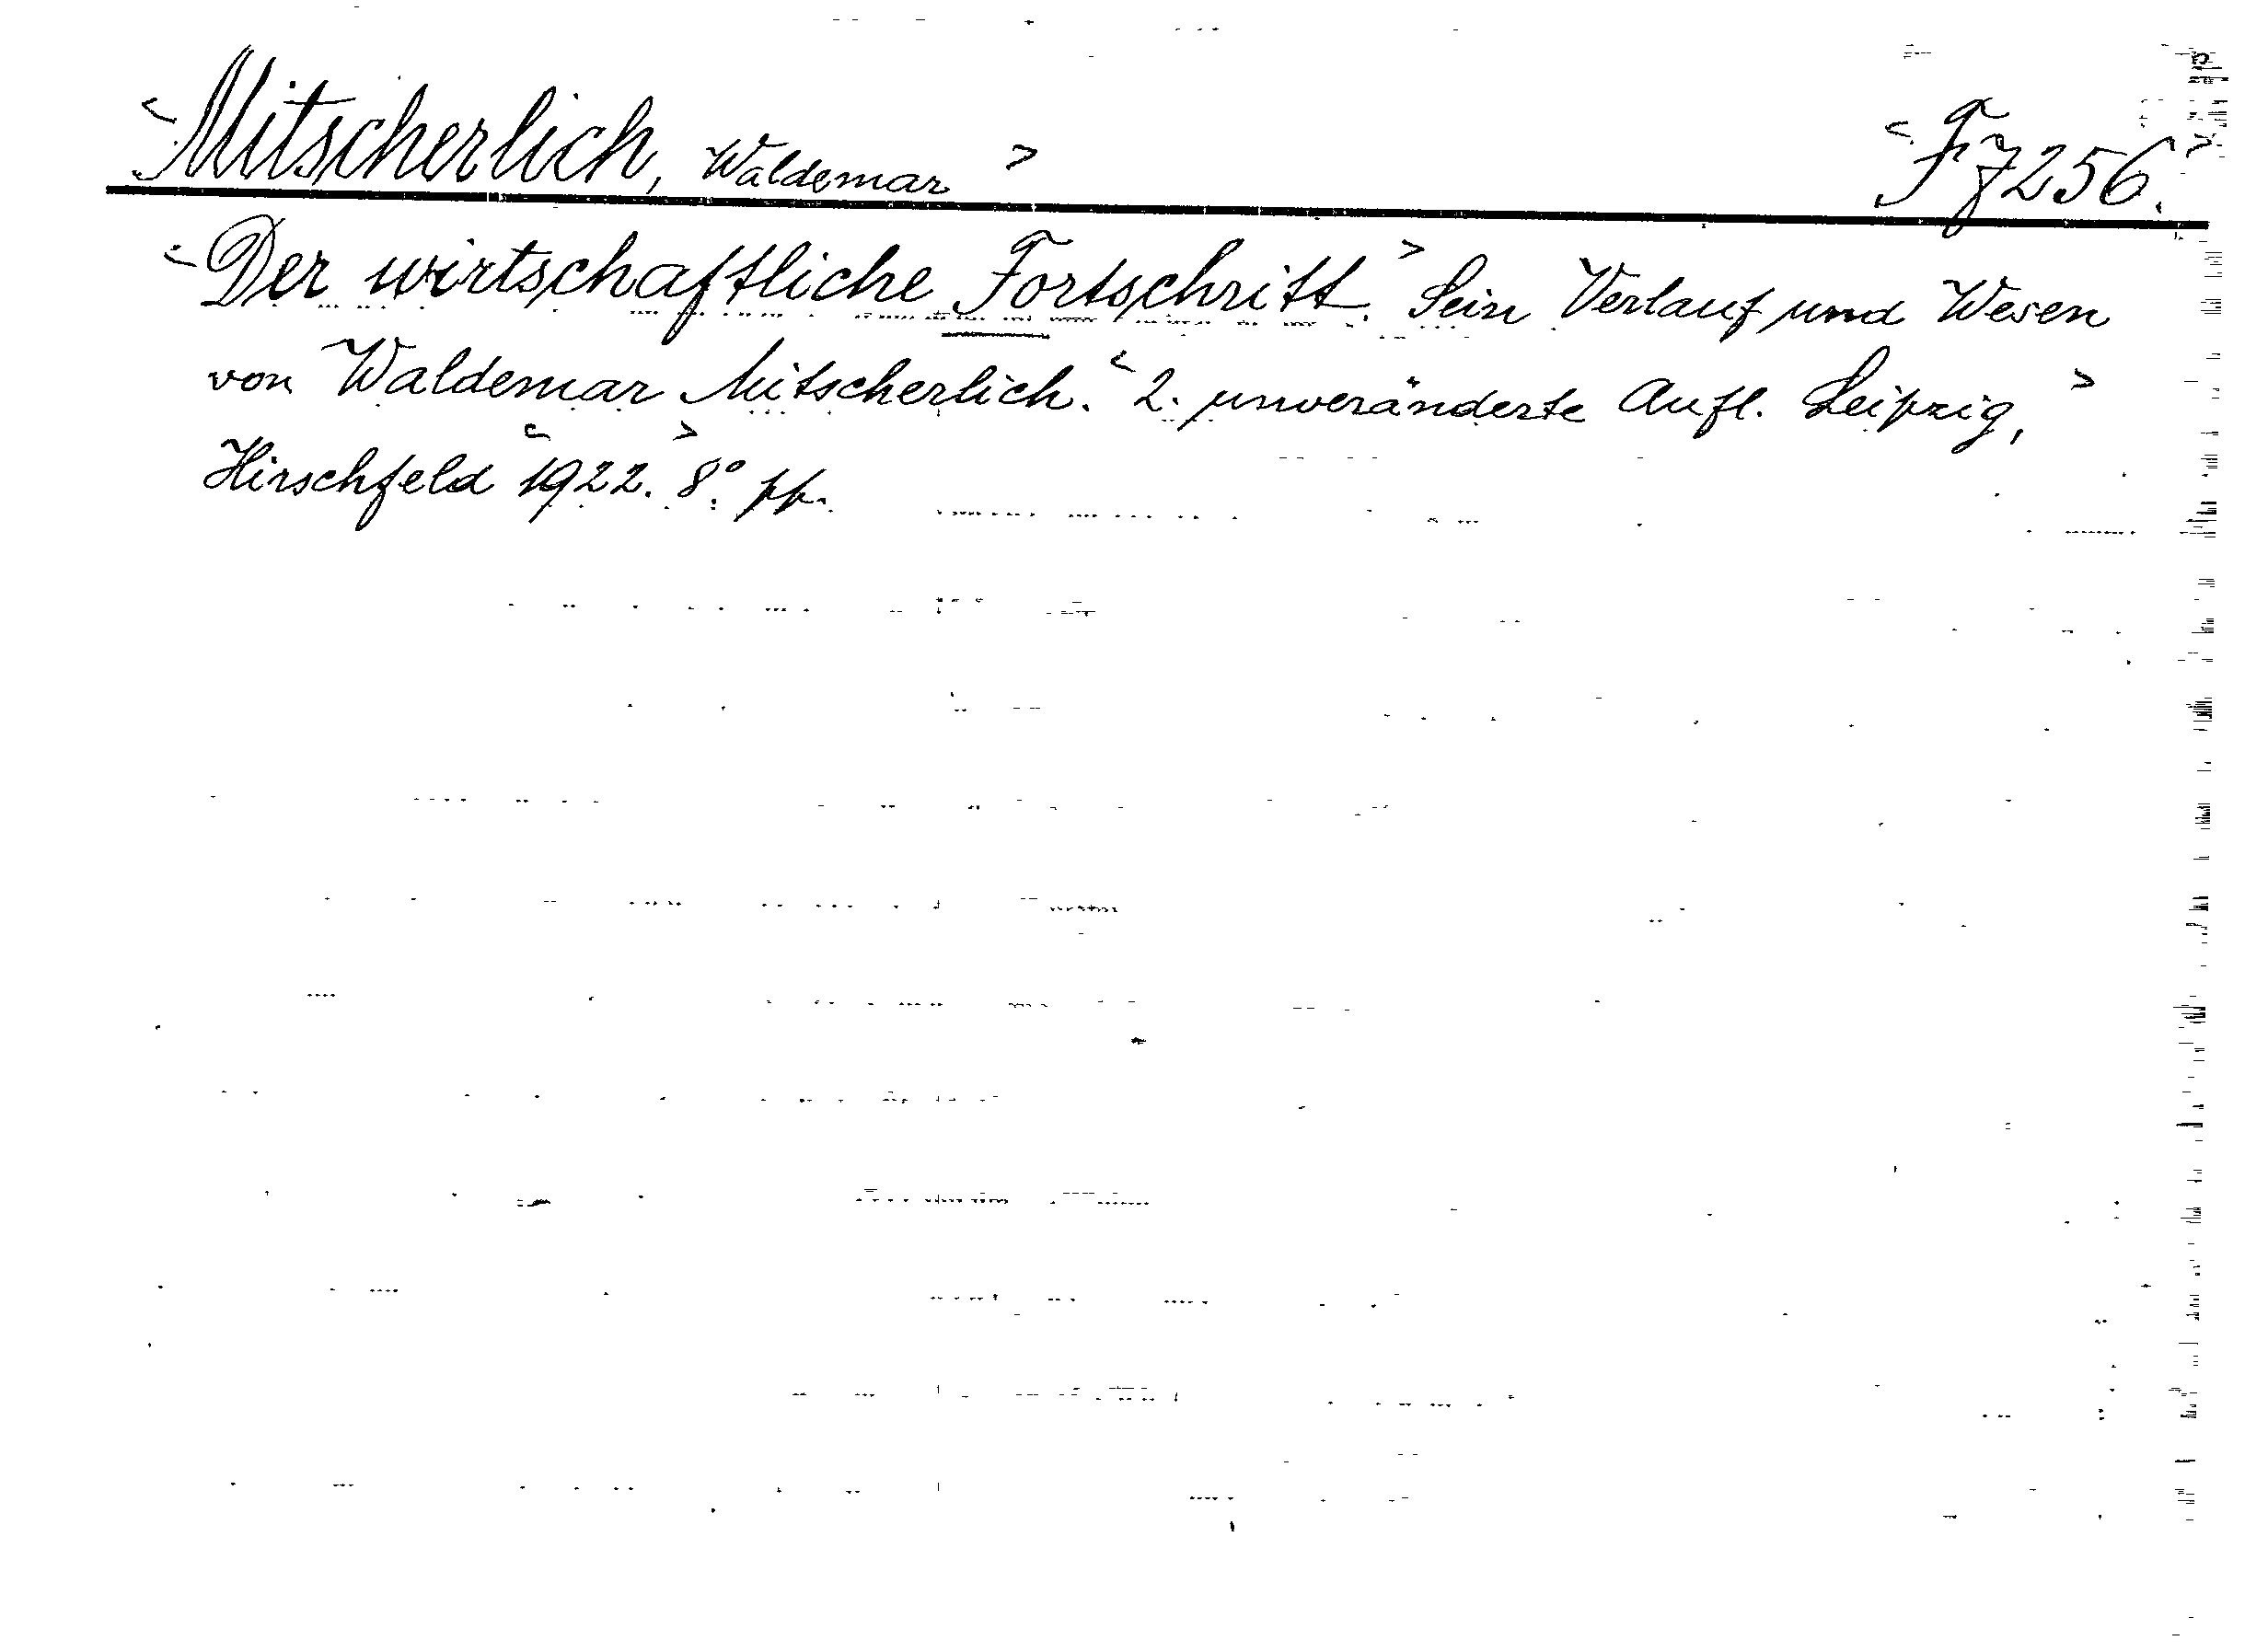 <Mitscherlich, Waldemar> <F 7256.>
<Der wirtschaftliche Fortschritt.> Sein Verlauf und Wesen
von Waldemar Mitscherlich. <2. unveränderte Aufl. Leipzig,>
Hirschfeld <1922.> 8°. pp.